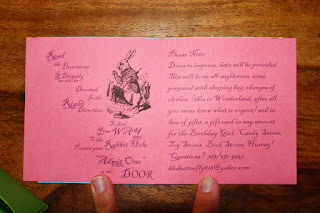 Read
the Directions
& Directly
you will be
Directed
in the
Right
Direction
To find
Your WAY
To the
Rabbit Hole
Present your
"Admit One"
at the
DOOR
Please Note:
Dress to impress, hats will be provided.
This will be an all-night event, come
prepared with sleeping bag, changes of
clothes, (this is Wonderland, after all,
you never know what to expect) and in
lieu of gifts, a gift card in any amount
for the Birthday Girl. Candy Store,
Toy Store, Book Store, Hurray!
Questions?